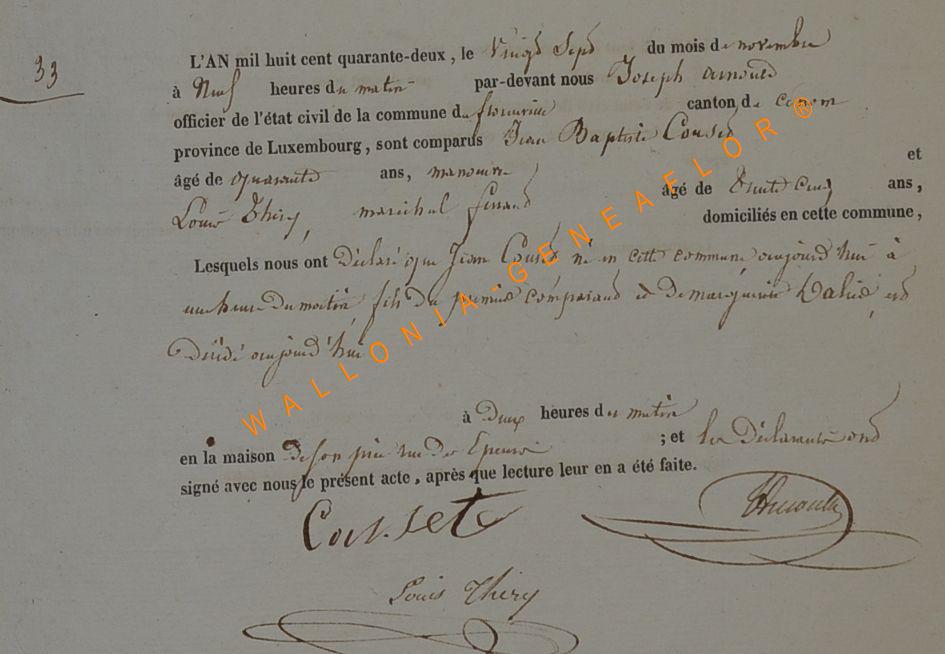 33
L'AN mil huit cent quarante-deux, le Vingt Sept du mois de novembre
à Neuf heures du matin par-devant nous Joseph Arnould
officier de l'état civil de la commune de florenville canton de
province de Luxembourg, sont comparus Jean Baptiste Couset
âgé de quarante ans, manouvrier et
Louis Thiry, maréchal ferrant âgé de trente cinq ans,
domiciliés en cette commune,
Lesquels nous ont déclaré que Jean Couset né en cette commune aujourd'hui à
une heure du matin, fils du premier comparant et de marguerite est
Décédé aujourd'hui
à Deux heures du matin
en la maison de son père rue des ; et les Déclarants ont
signé avec nous le présent acte, après que lecture leur en a été faite.
Couset Arnould
Louis Thiry
WALLONIA-GENEAFLOR®